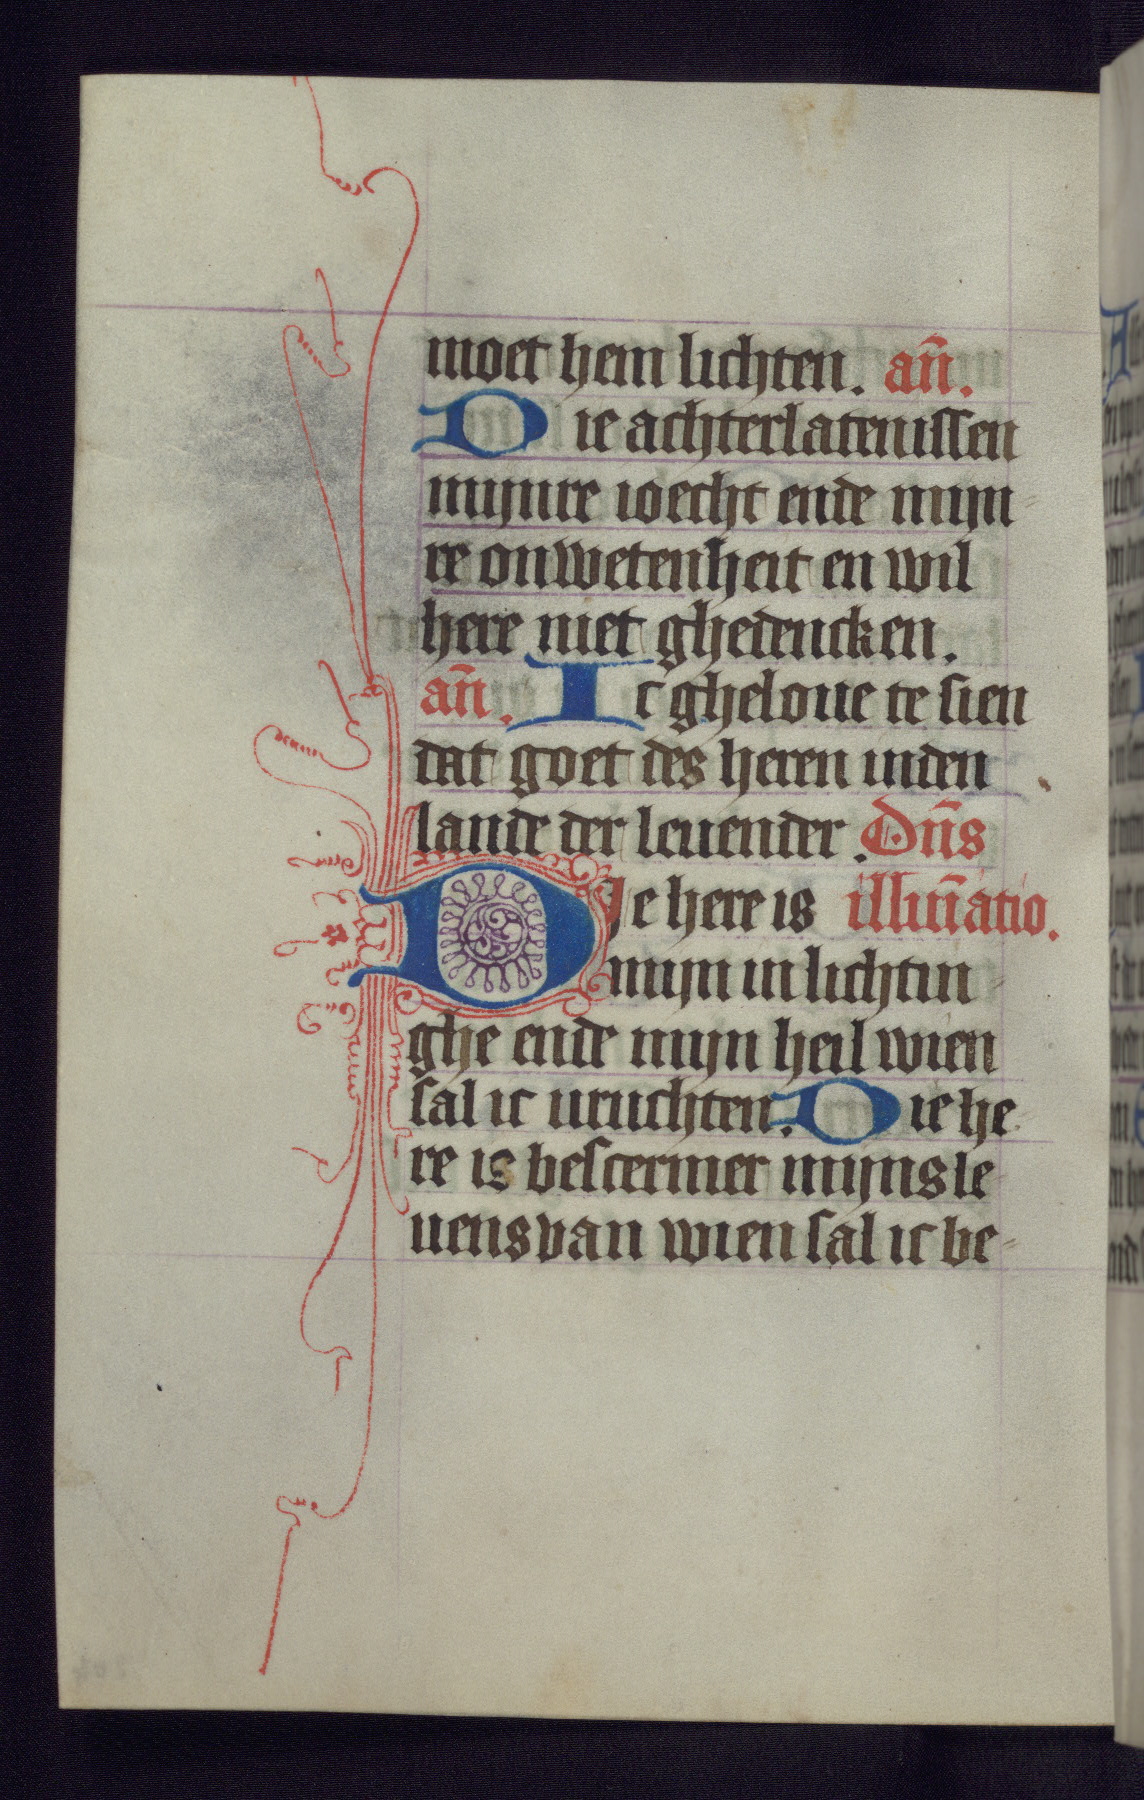 moet hem lichten. an̄.
Die achterlatenissen
mijnre ioecht ende mijn
re onwetenheit en wil
here niet ghedencken.
an̄. Ic gheloue te sien
dat goet des heren inden
lande der leuender. Dn̄s
Die here is illūīatio.
mijn in lichtin
ghe ende mijn heil wien
sal ic vruchten. Die he
re is bescermer mijns le
uens van wien sal ic be